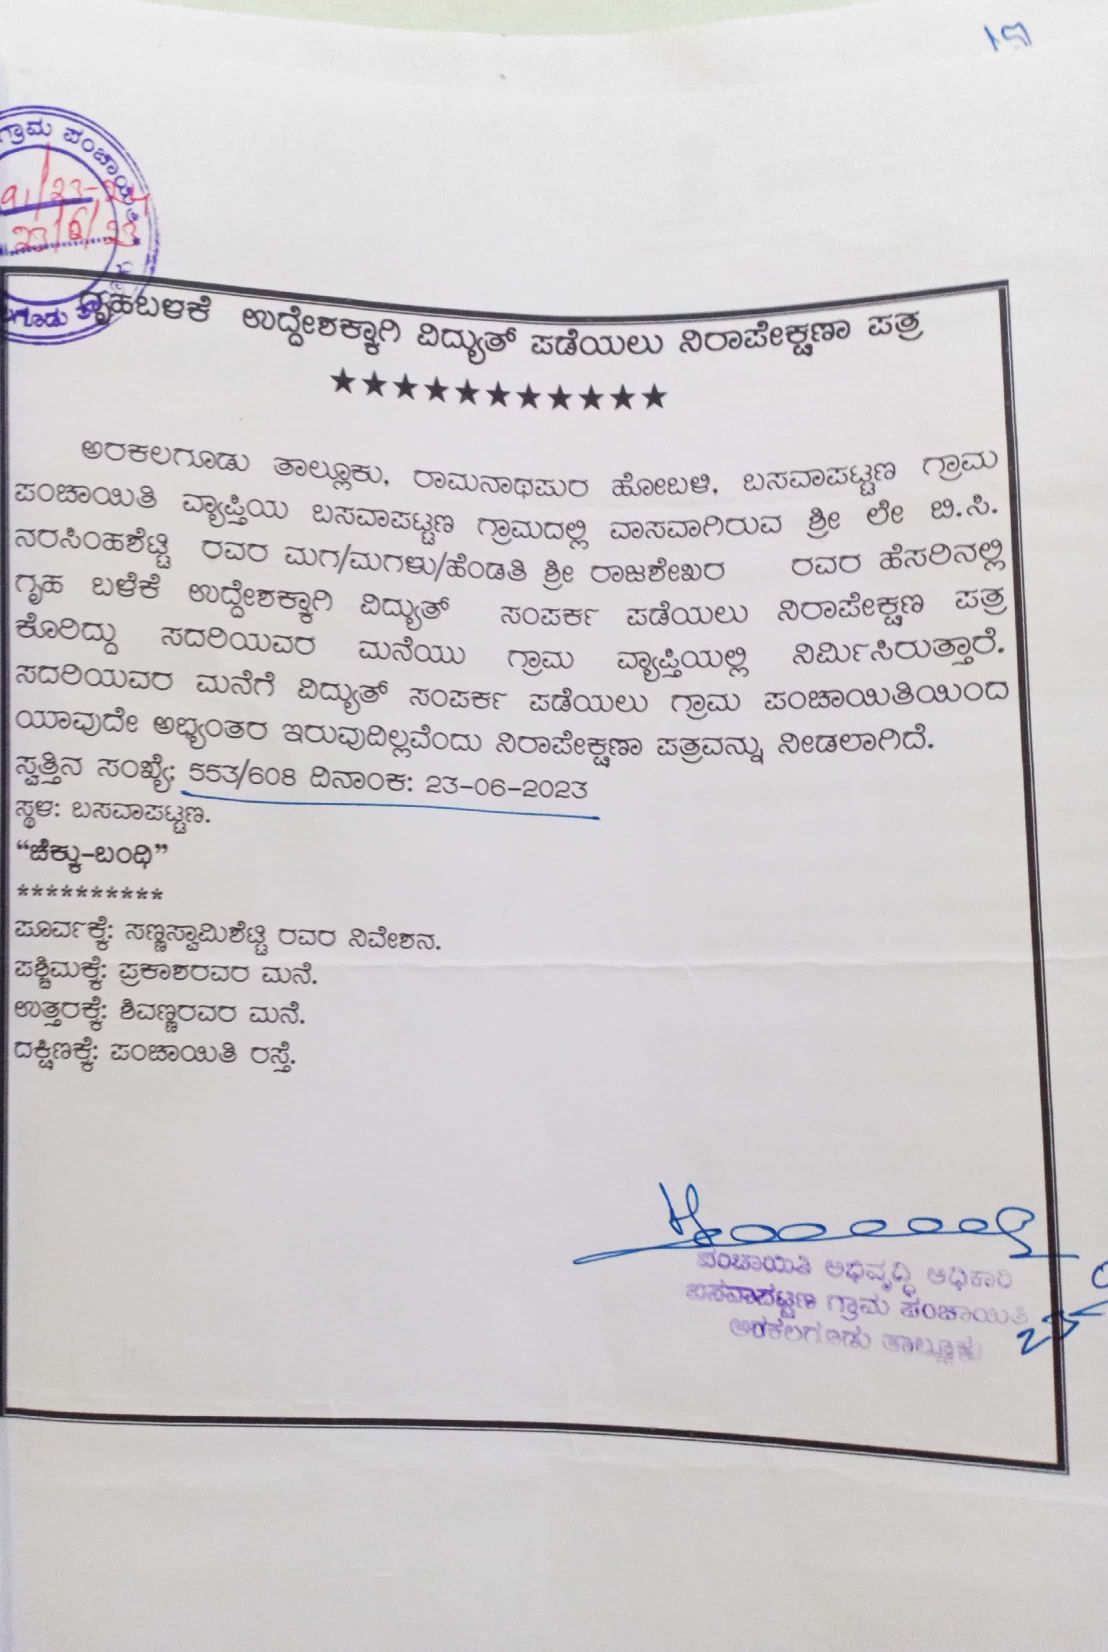 ಗ್ರಾಮ ಪಂಚಾಯಿತಿ
91/23-24
23/6/23
ಗೃಹಬಳಕೆ ಉದ್ದೇಶಕ್ಕಾಗಿ ವಿದ್ಯುತ್ ಪಡೆಯಲು ನಿರಾಪೇಕ್ಷಣಾ ಪತ್ರ
★★★★★★★★★★★
ಅರಕಲಗೂಡು ತಾಲ್ಲೂಕು, ರಾಮನಾಥಪುರ ಹೋಬಳಿ, ಬಸವಾಪಟ್ಟಣ ಗ್ರಾಮ
ಪಂಚಾಯಿತಿ ವ್ಯಾಪ್ತಿಯ ಬಸವಾಪಟ್ಟಣ ಗ್ರಾಮದಲ್ಲಿ ವಾಸವಾಗಿರುವ ಶ್ರೀ ಲೇ ಬಿ.ಸಿ.
ನರಸಿಂಹಶೆಟ್ಟಿ ರವರ ಮಗ/ಮಗಳು/ಹೆಂಡತಿ ಶ್ರೀ ರಾಜಶೇಖರ ರವರ ಹೆಸರಿನಲ್ಲಿ
ಗೃಹ ಬಳೆಕೆ ಉದ್ದೇಶಕ್ಕಾಗಿ ವಿದ್ಯುತ್ ಸಂಪರ್ಕ ಪಡೆಯಲು ನಿರಾಪೇಕ್ಷಣ ಪತ್ರ
ಕೊರಿದ್ದು ಸದರಿಯವರ ಮನೆಯು ಗ್ರಾಮ ವ್ಯಾಪ್ತಿಯಲ್ಲಿ ನಿರ್ಮಿಸಿರುತ್ತಾರೆ.
ಸದರಿಯವರ ಮನೆಗೆ ವಿದ್ಯುತ್ ಸಂಪರ್ಕ ಪಡೆಯಲು ಗ್ರಾಮ ಪಂಚಾಯಿತಿಯಿಂದ
ಯಾವುದೇ ಅಭ್ಯಂತರ ಇರುವುದಿಲ್ಲವೆಂದು ನಿರಾಪೇಕ್ಷಣಾ ಪತ್ರವನ್ನು ನೀಡಲಾಗಿದೆ.
ಸ್ವತ್ತಿನ ಸಂಖ್ಯೆ: 553/608 ದಿನಾಂಕ: 23-06-2023
ಸ್ಥಳ: ಬಸವಾಪಟ್ಟಣ.
“ಚೆಕ್ಕು-ಬಂಧಿ”
**********
ಪೂರ್ವಕ್ಕೆ: ಸಣ್ಣಸ್ವಾಮಿಶೆಟ್ಟಿ ರವರ ನಿವೇಶನ.
ಪಶ್ಚಿಮಕ್ಕೆ: ಪ್ರಕಾಶರವರ ಮನೆ.
ಉತ್ತರಕ್ಕೆ: ಶಿವಣ್ಣರವರ ಮನೆ.
ದಕ್ಷಿಣಕ್ಕೆ: ಪಂಚಾಯಿತಿ ರಸ್ತೆ.
ಪಂಚಾಯಿತಿ ಅಭಿವೃದ್ಧಿ ಅಧಿಕಾರಿ
ಬಸವಾಪಟ್ಟಣ ಗ್ರಾಮ ಪಂಚಾಯಿತಿ
ಅರಕಲಗೂಡು ತಾಲ್ಲೂಕು